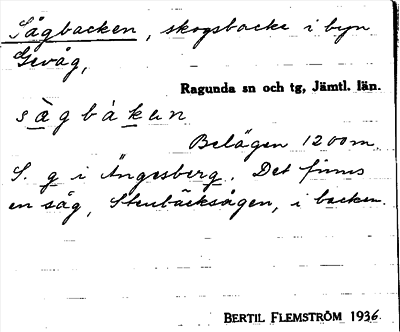 Sågbacken, skogsbacke i byn
Gevåg,
Ragunda sn och tg, Jämtl. län.
sàgbàken
Belägen 1200 m
S. g i Ängesberg. Det finns
en såg, Stenbäcksågen, i backen.
BERTIL FLEMSTRÖM 1936.